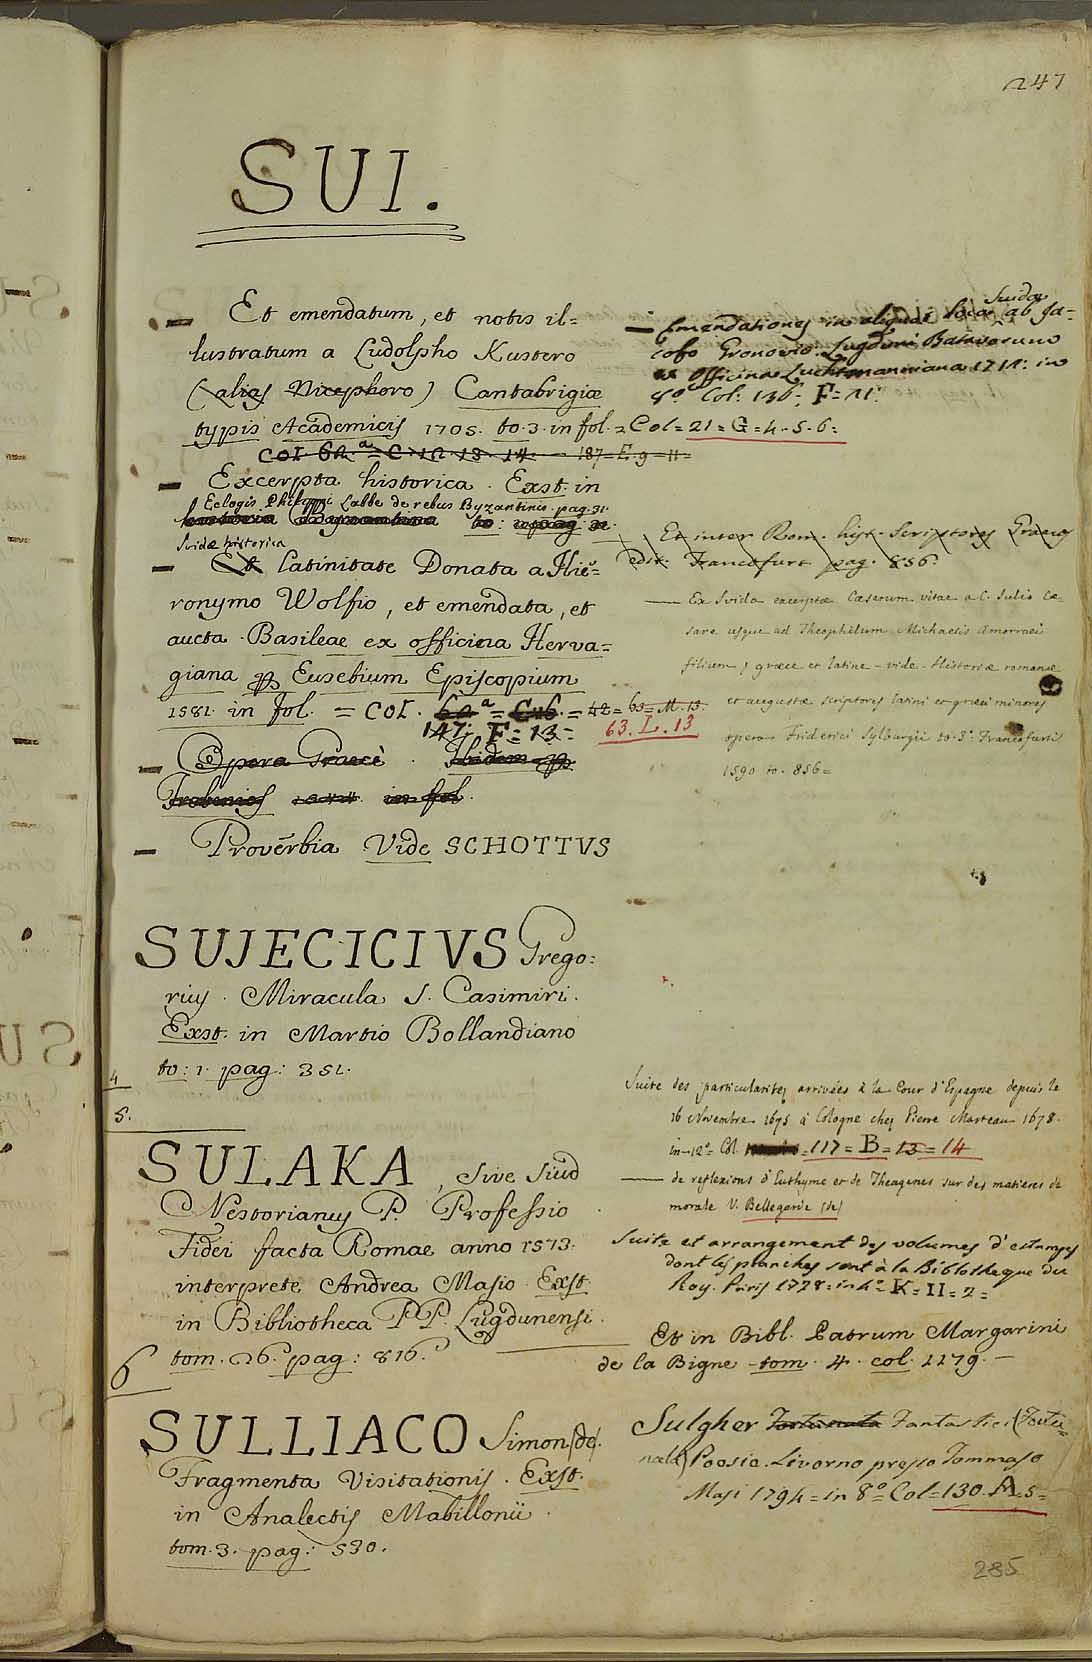 247
SUI.
— Et emendatum, et notis il=
lustratum a Ludolpho Kustero
(alias Nicephoro) Cantabrigiæ
typis Academicis 1705. to. 3. in fol. = Col = 21 = G = 4 - 5 - 6 =
COL 62.ª = C 12 13 14. — 187 = E. 9 = 11 =
— Excerpta historica. Exst. in
Eclogis Philippi Labbe de rebus Byzantinis. pag. 31.
Suidæ historica
— Et latinitate Donata a Hie=
ronymo Wolfio, et emendata, et
aucta. Basileae ex officina Herva=
giana per Eusebium Episcopium
1581. in fol. = COL. = 42 = 63 = M. 13.
147: F = 13 = 63. L. 13
— Opera Graecè. Ibidem per
Frobenios in fol.
— Proverbia Vide SCHOTTVS
SUJECICIVS Grego=
rius. Miracula S. Casimiri.
Exst. in Martio Bollandiano
to: 1. pag: 351.
4
5.
SULAKA, sive Siud
Nestorianus P. Professio
Fidei facta Romae anno 1573.
interprete Andrea Masio. Exst.
in Bibliotheca PP. Lugdunensi.
tom. 26. pag: 816.
6
SULLIACO Simon (de).
Fragmenta Visitationis. Exst.
in Analectis Mabillonii.
tom. 3. pag: 530.
Suidæ
— Emendationes in aliquot loca ab Ja=
cobo Gronovio. Lugduni Batavorum
ex Officina Luchtmanniana 17 in
8º Col: 136: F = 11:
Et inter Rom. hist. Scriptores Græcos
edit. Francofurt pag. 856.
— Ex Svida excerptæ Cæserum vitae a C. Julio Cæ
sare usque ad Theophilum Michaelis Amorraei
filium, græce et latine - vide - Historiæ romanæ
et augustæ scriptores latini et græci minores
opera Friderici Sylburgii to. 3: Francofurti
1590 to. 856 =
Suite des particularites arrivées à la Cour d'Espagne depuis le
16 Novembre 1675 à Cologne chez Pierre Marteau 1678.
in-12º = Col. = 117 = B = 13 = 14
— de reflexions d'Euthyme et de Theagenes sur des matieres de
morale V. Bellegarde (de)
Suite et arrangement des volumes d'estampes
dont les planches sont à la Bibliotheque du
Roy. Paris 1728 = in 4º = K = II = 2 =
Et in Bibl. Patrum Margarini
de la Bigne tom. 4. col. 1179. —
Sulgher Fortunata Fantastici (Fortu=
nata) Poesie. Livorno presso Tommaso
Masi 1794 = in 8º = Col = 130. A. 5 =
285